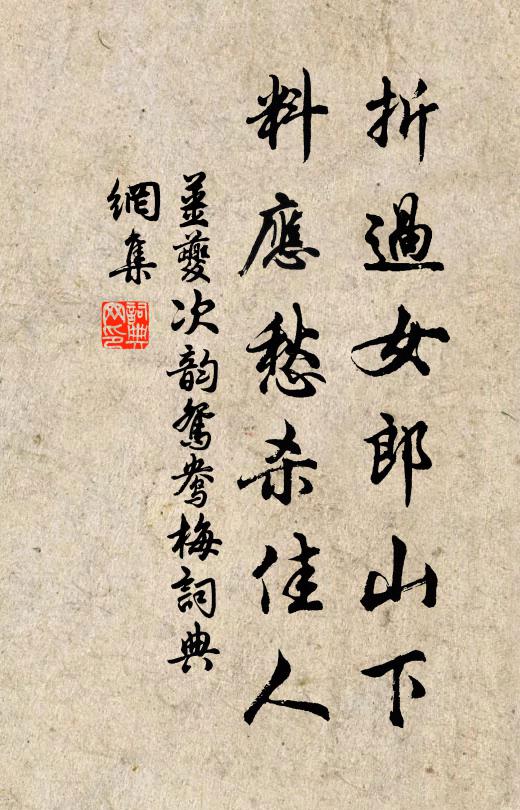 折過女郎山下
料應愁杀佳人
姜夔次韵鴛鴦梅詞典
網集
詞典
网印